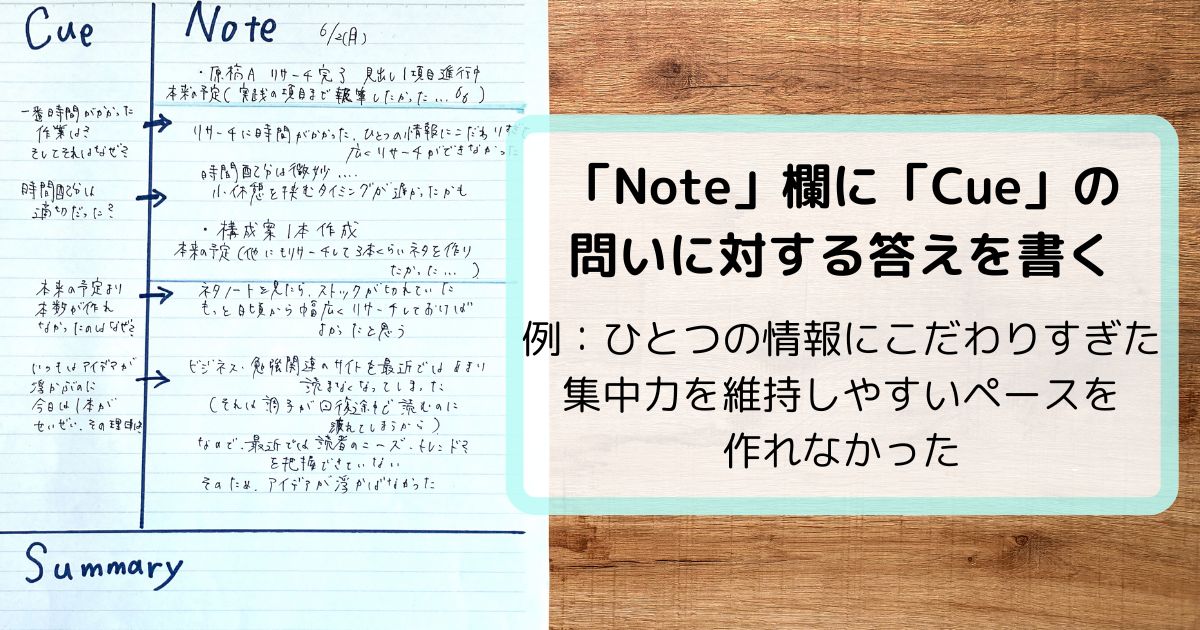 Cue
一番時間がかかった
作業は？
そしてそれはなぜ？
時間配分は
適切だった？
本来の予定より
本数が作れ
なかったのはなぜ？
いつもはアイデアが
浮かぶのに
今日は1本が
せいぜい、その理由は
Note 6/2(月)
・原稿A リサーチ完了 見出し1項目進行中
本来の予定(実践の項目まで執筆したかった…)
リサーチに時間がかかった、ひとつの情報にこだわりすぎ
広くリサーチができなかった
時間配分は微妙….
小休憩を挟むタイミングが遅かったかも
・構成案1本作成
本来の予定(他にもリサーチして3本くらいネタを作り
たかった… )
ネタノートを見たら、ストックが切れていた
もっと日頃から幅広くリサーチしておけば
よかったと思う
ビジネス・勉強関連のサイトを最近ではあまり
読まなくなってしまった
(それは調子が回復途中で読むのに
疲れてしまうから)
なので、最近では読者のニーズ・トレンド
を把握できていない
そのため、アイデアが浮かばなかった
Summary
「Note」欄に「Cue」の
問いに対する答えを書く
例：ひとつの情報にこだわりすぎた
集中力を維持しやすいペースを
作れなかった